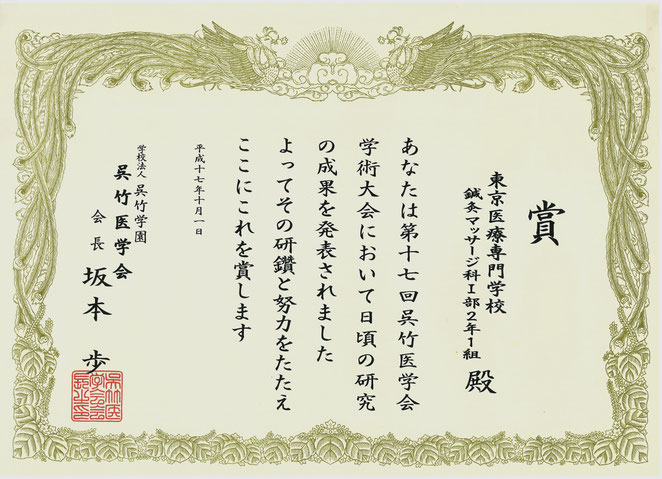 賞
東京医療専門学校
鍼灸マッサージ科Ⅰ部2年1組
殿
あなたは第十七回呉竹医学会
学術大会において日頃の研究
の成果を発表されました
よってその研鑽と努力をたたえ
ここにこれを賞します
平成十七年十月一日
学校法人 呉竹学園
呉竹医学会
会長 坂本 歩
呉竹医
学会会
長之印